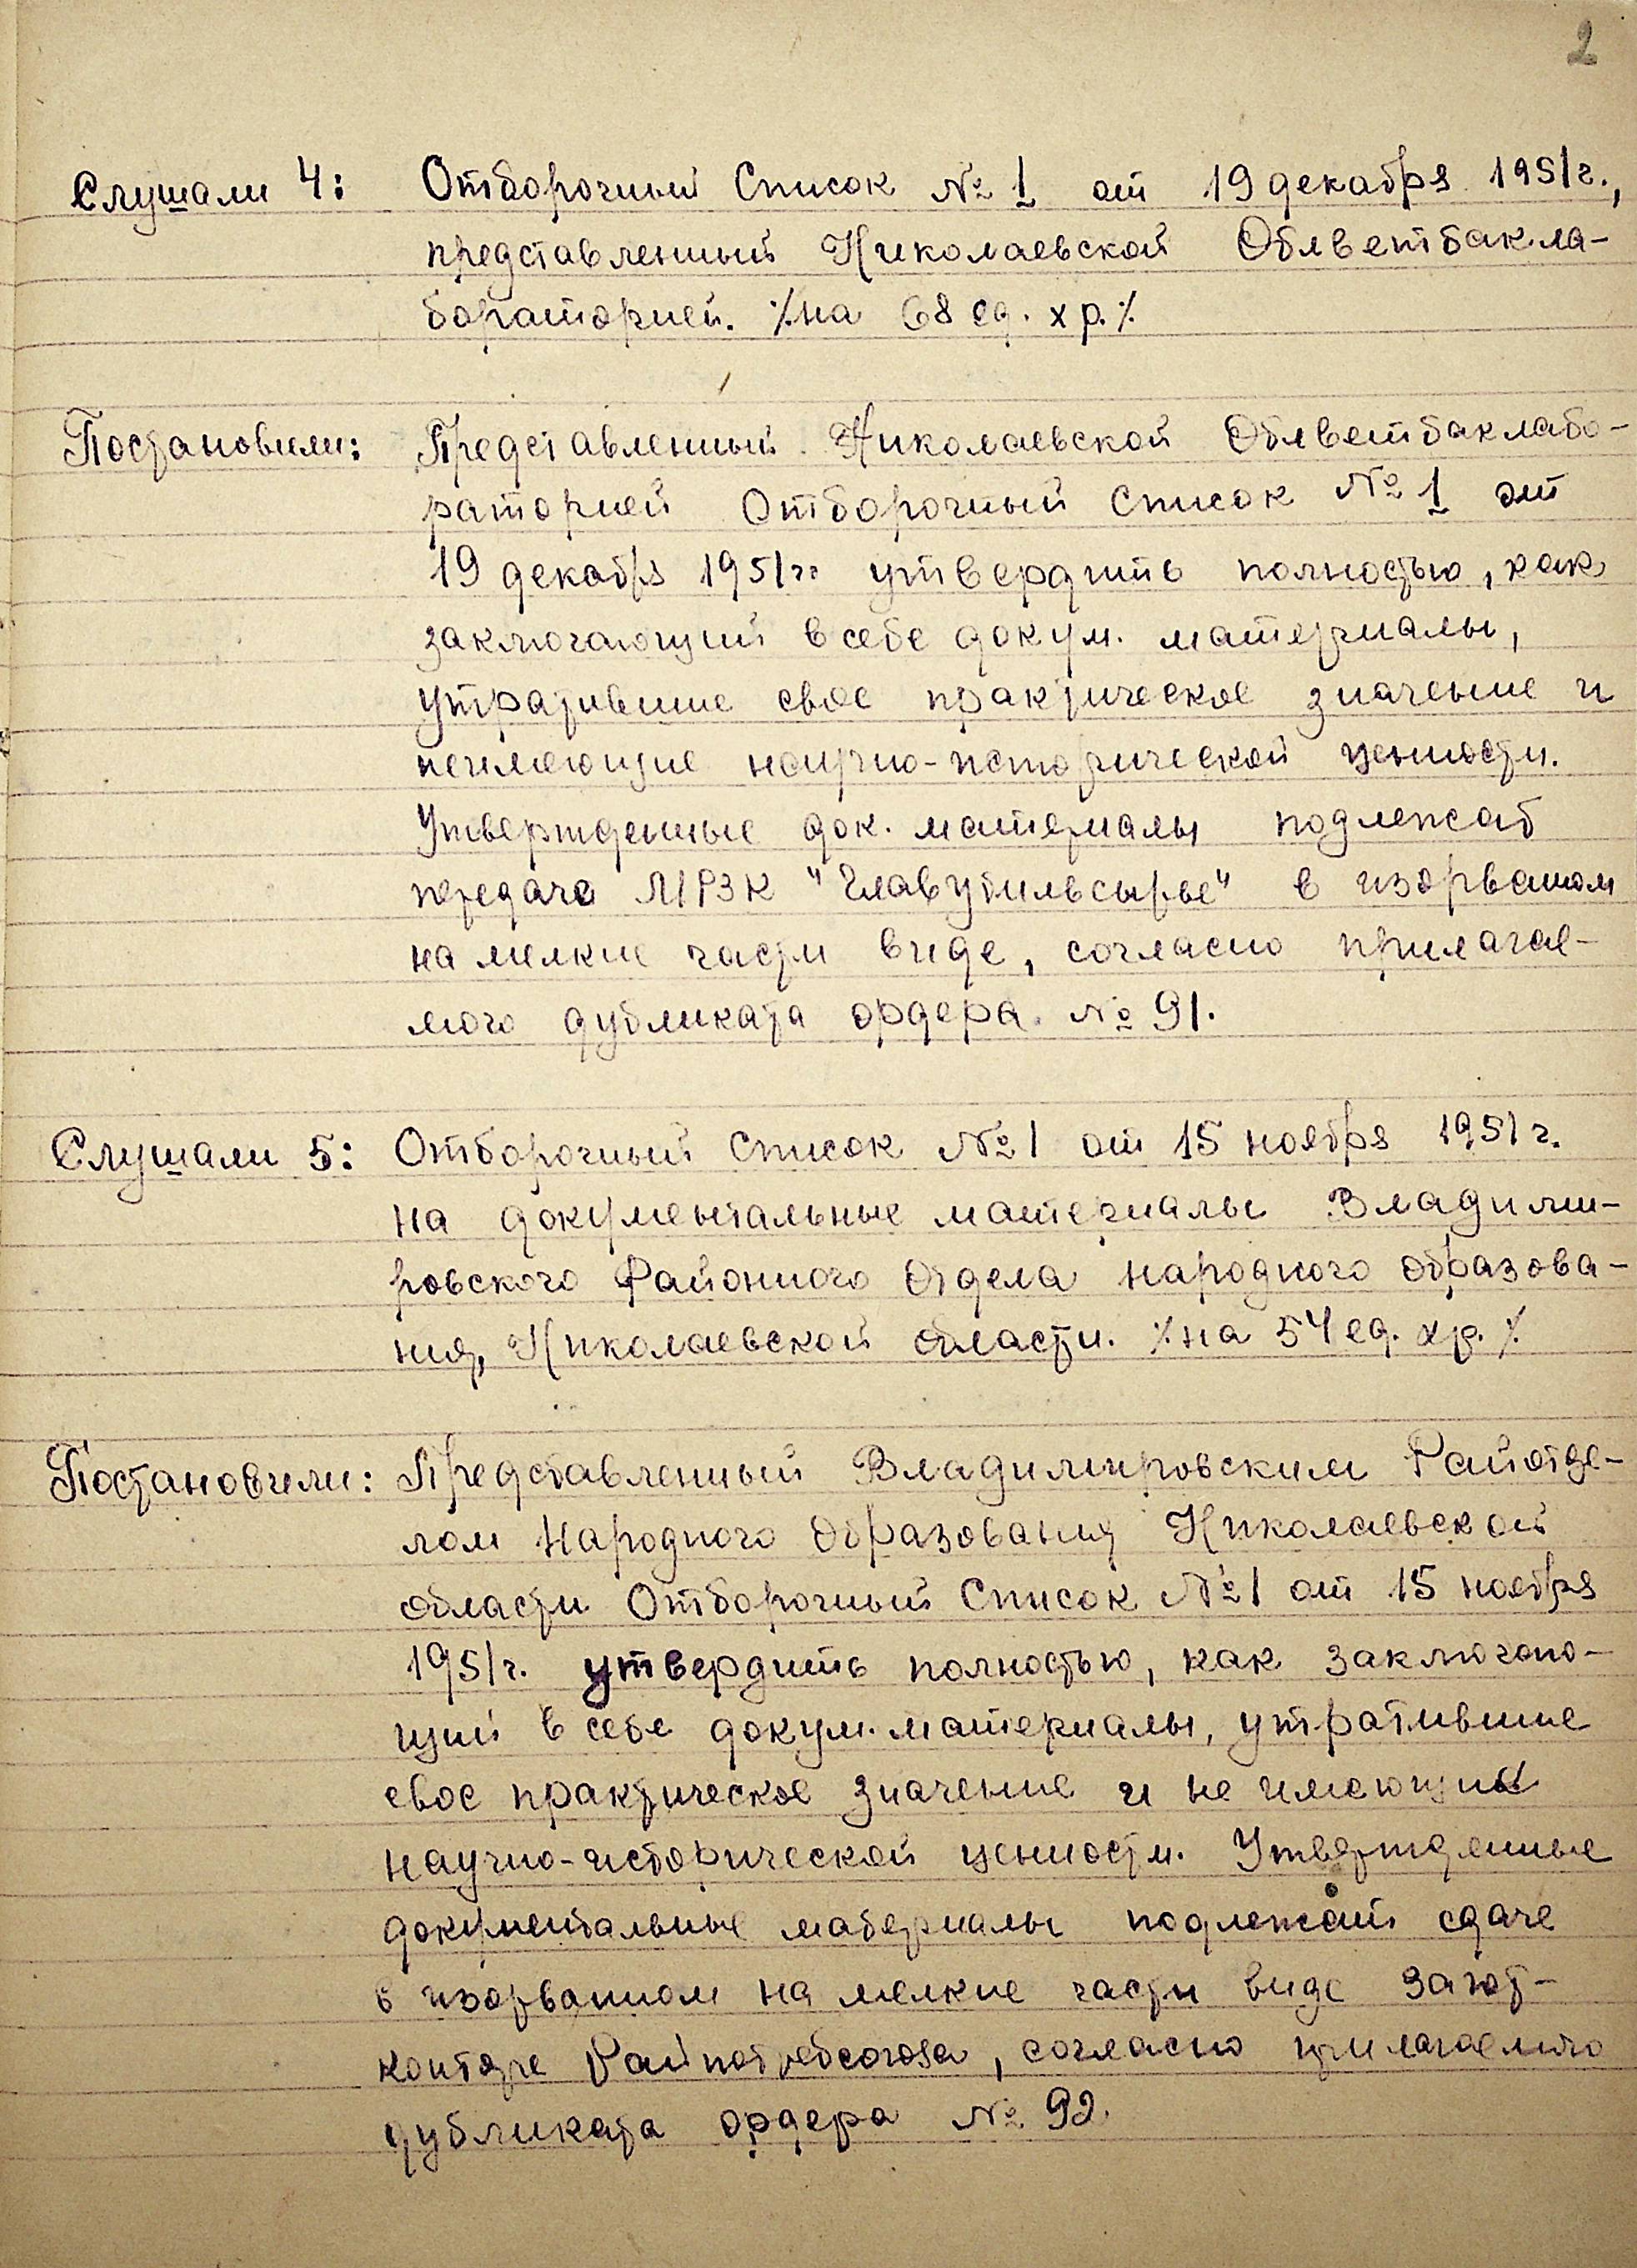 2
Слушали 4: Отборочный Список № 1 от 19 декабря 1951 г.,
представленный Николаевской Облветбакла-
бораторией. ⁒на 68 ед. хр.⁒
Постановили: Представленный Николаевской Облветбаклабо-
раторией Отборочный Список № 1 от
19 декабря 1951 г. утвердить полностью, как
заключающий в себе докум. материалы,
утратившие свое практическое значение и
неимеющие научно-исторической ценности.
Утвержденные док. материалы подлежат
передаче МРЗК "Главутильсырье" в изорваном
на мелкие части виде, согласно прилагае-
мого дубликата ордера № 91.
Слушали 5: Отборочный Список №1 от 15 ноября 1951 г.
на документальные материалы Владими-
ровского Районного Отдела народного образова-
ния, Николаевской области. ⁒на 54 ед. хр.⁒
Постановили: Представленный Владимировским Райотде-
лом Народного Образования Николаевской
области Отборочный Список №1 от 15 ноября
1951 г. утвердить полностью, как заключаю-
щий в себе докум. материалы, утратившие
свое практическое значение и не имеющие
научно-исторической ценности. Утвержденные
документальные материалы подлежат сдаче
в изорванном на мелкие части виде загот-
конторе Райпотребсоюза, согласно прилагаемого
дубликата ордера № 92.